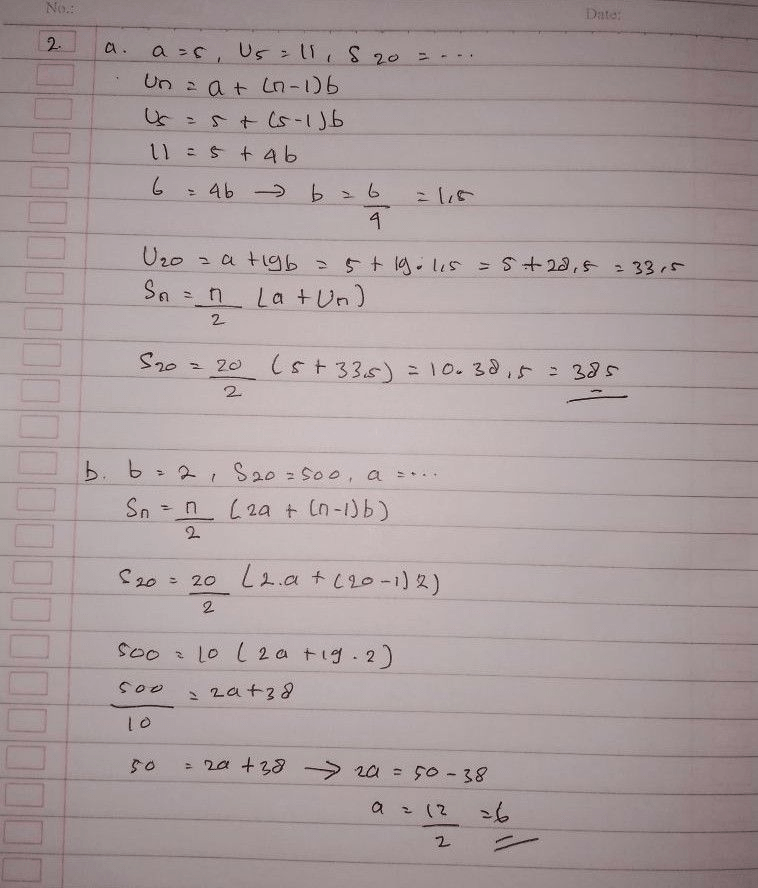 No.:
Date:
2. a. a = 5, U5 = 11, S20 = ...
Un = a + (n-1)b
U5 = 5 + (5-1)b
11 = 5 + 4b
6 = 4b → b = 6/4 = 1,5
U20 = a + 19b = 5 + 19 . 1,5 = 5 + 28,5 = 33,5
Sn = n/2 (a + Un)
S20 = 20/2 (5 + 33,5) = 10 . 38,5 = 385
b. b = 2, S20 = 500, a = ...
Sn = n/2 (2a + (n-1)b)
S20 = 20/2 (2.a + (20-1)2)
500 = 10 (2a + 19 . 2)
500/10 = 2a + 38
50 = 2a + 38 → 2a = 50 - 38
a = 12/2 = 6